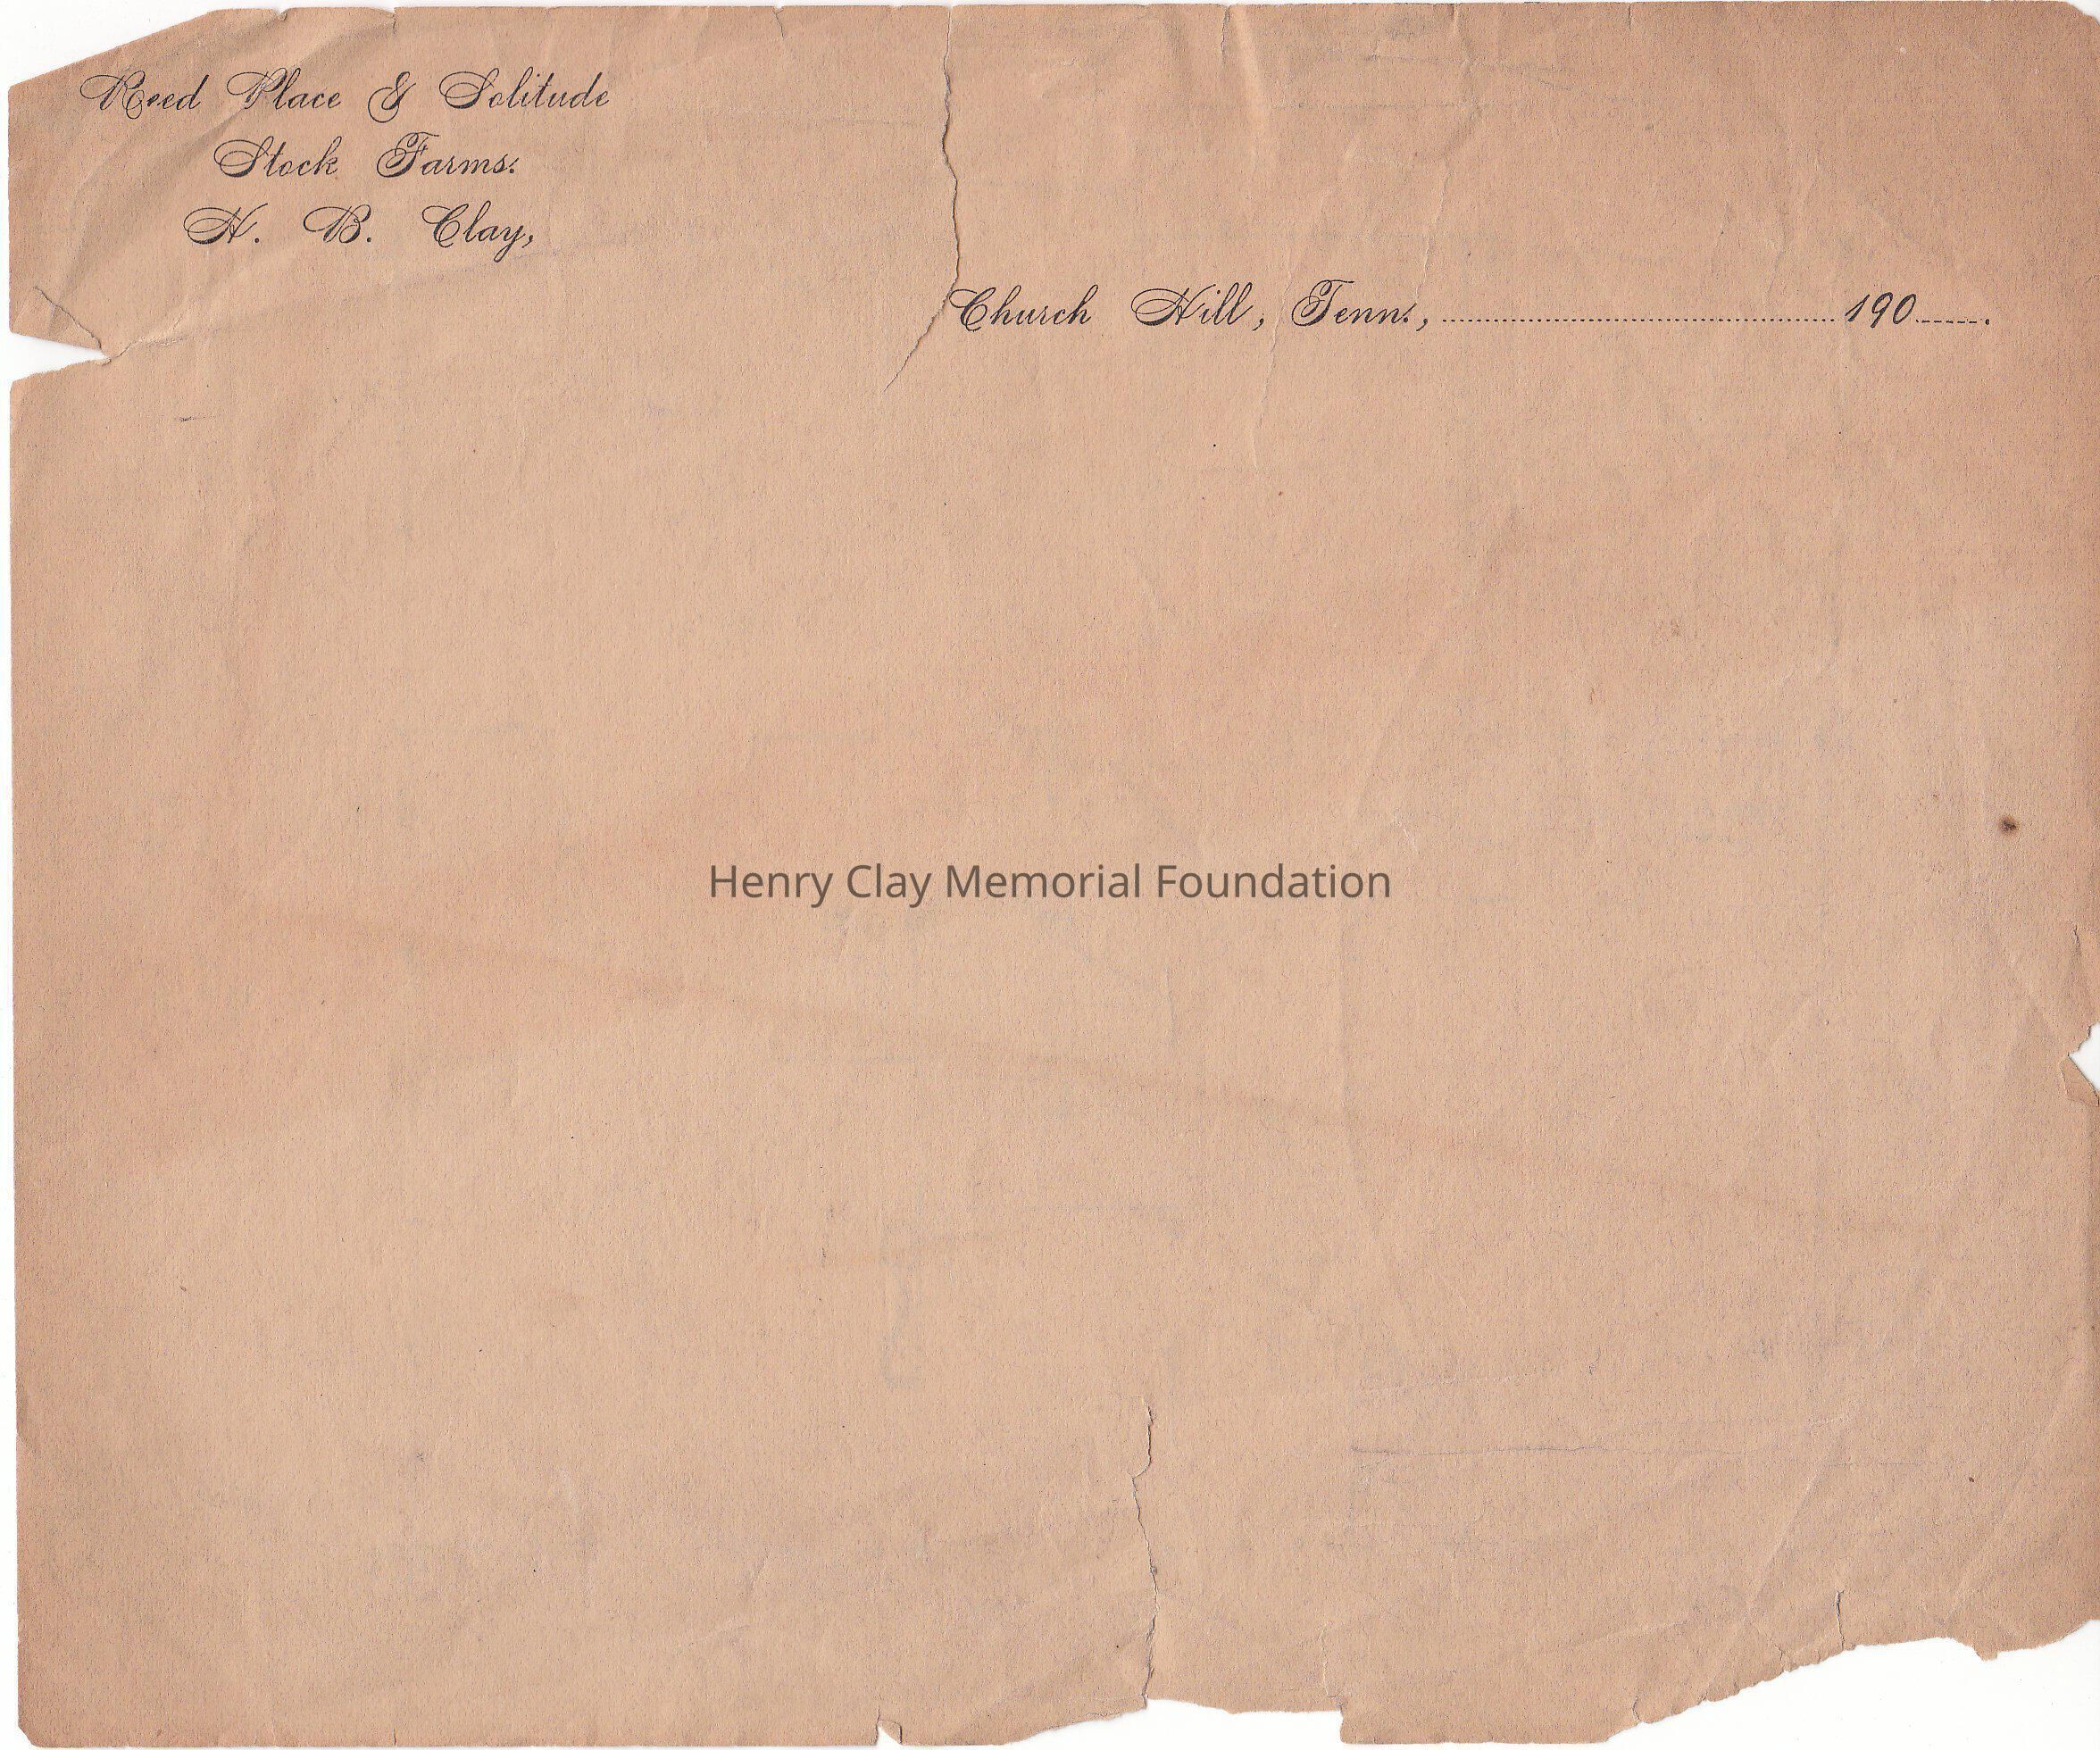 Reed Place & Solitude
Stock Farms.
H. B. Clay,
Church Hill, Tenn., 190 .
Henry Clay Memorial Foundation